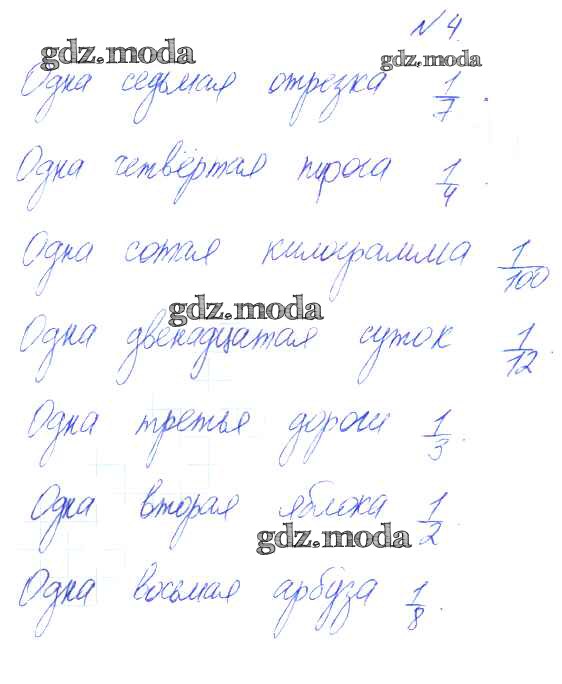 № 4.
gdz.moda gdz.moda
Одна седьмая отрезка 1/7.
Одна четвёртая пирога 1/4.
Одна сотая килограмма 1/100
gdz.moda
Одна двенадцатая суток 1/12.
Одна третья дороги 1/3.
Одна вторая яблока 1/2.
gdz.moda
Одна восьмая арбуза 1/8.